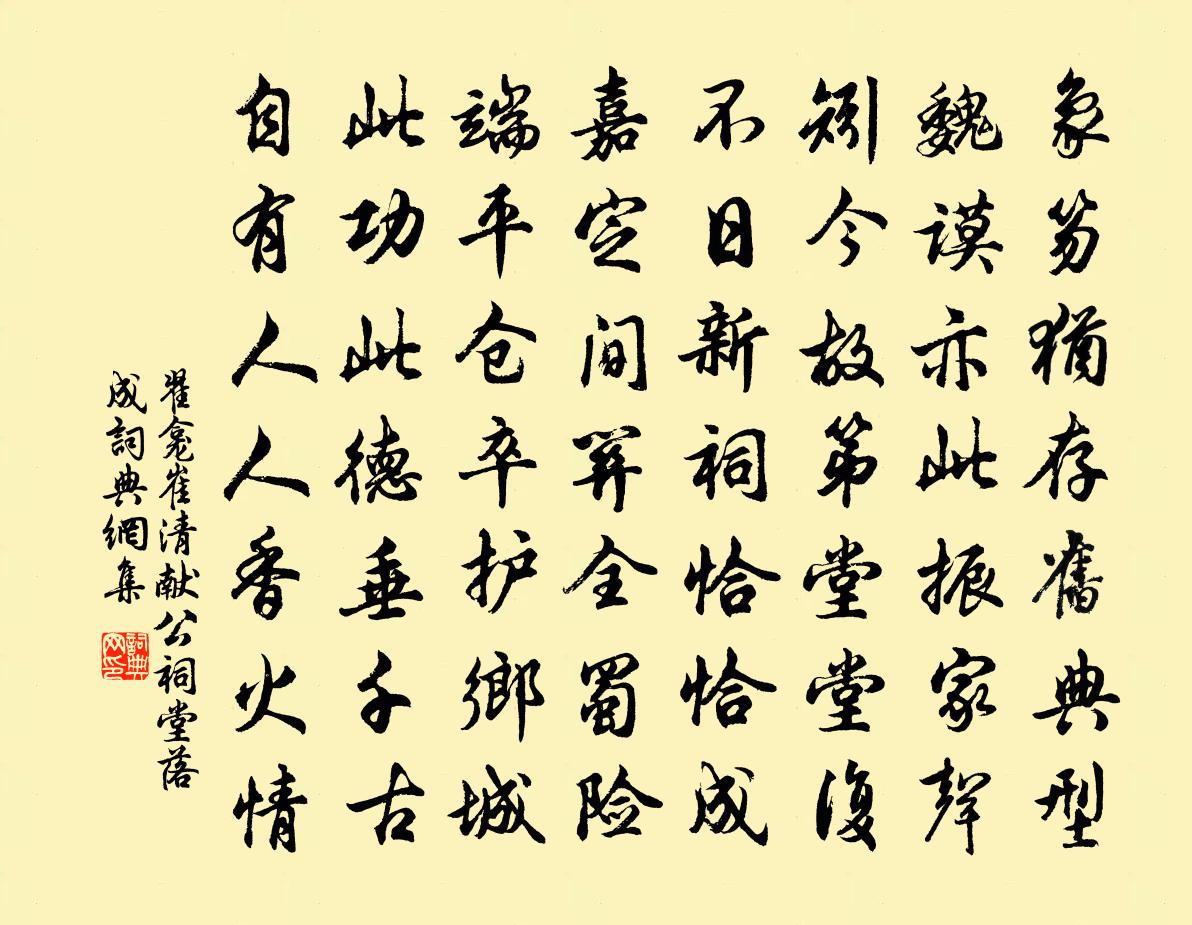 象笏猶存舊典型
魏谟亦此振家聲
矧今故第堂堂復
不日新祠恰恰成
嘉定间開全蜀险
端平仓卒护鄉城
此功此德垂千古
自有人人香火情
翟龛崔清献公祠堂落
成詞典網集
詞典网印